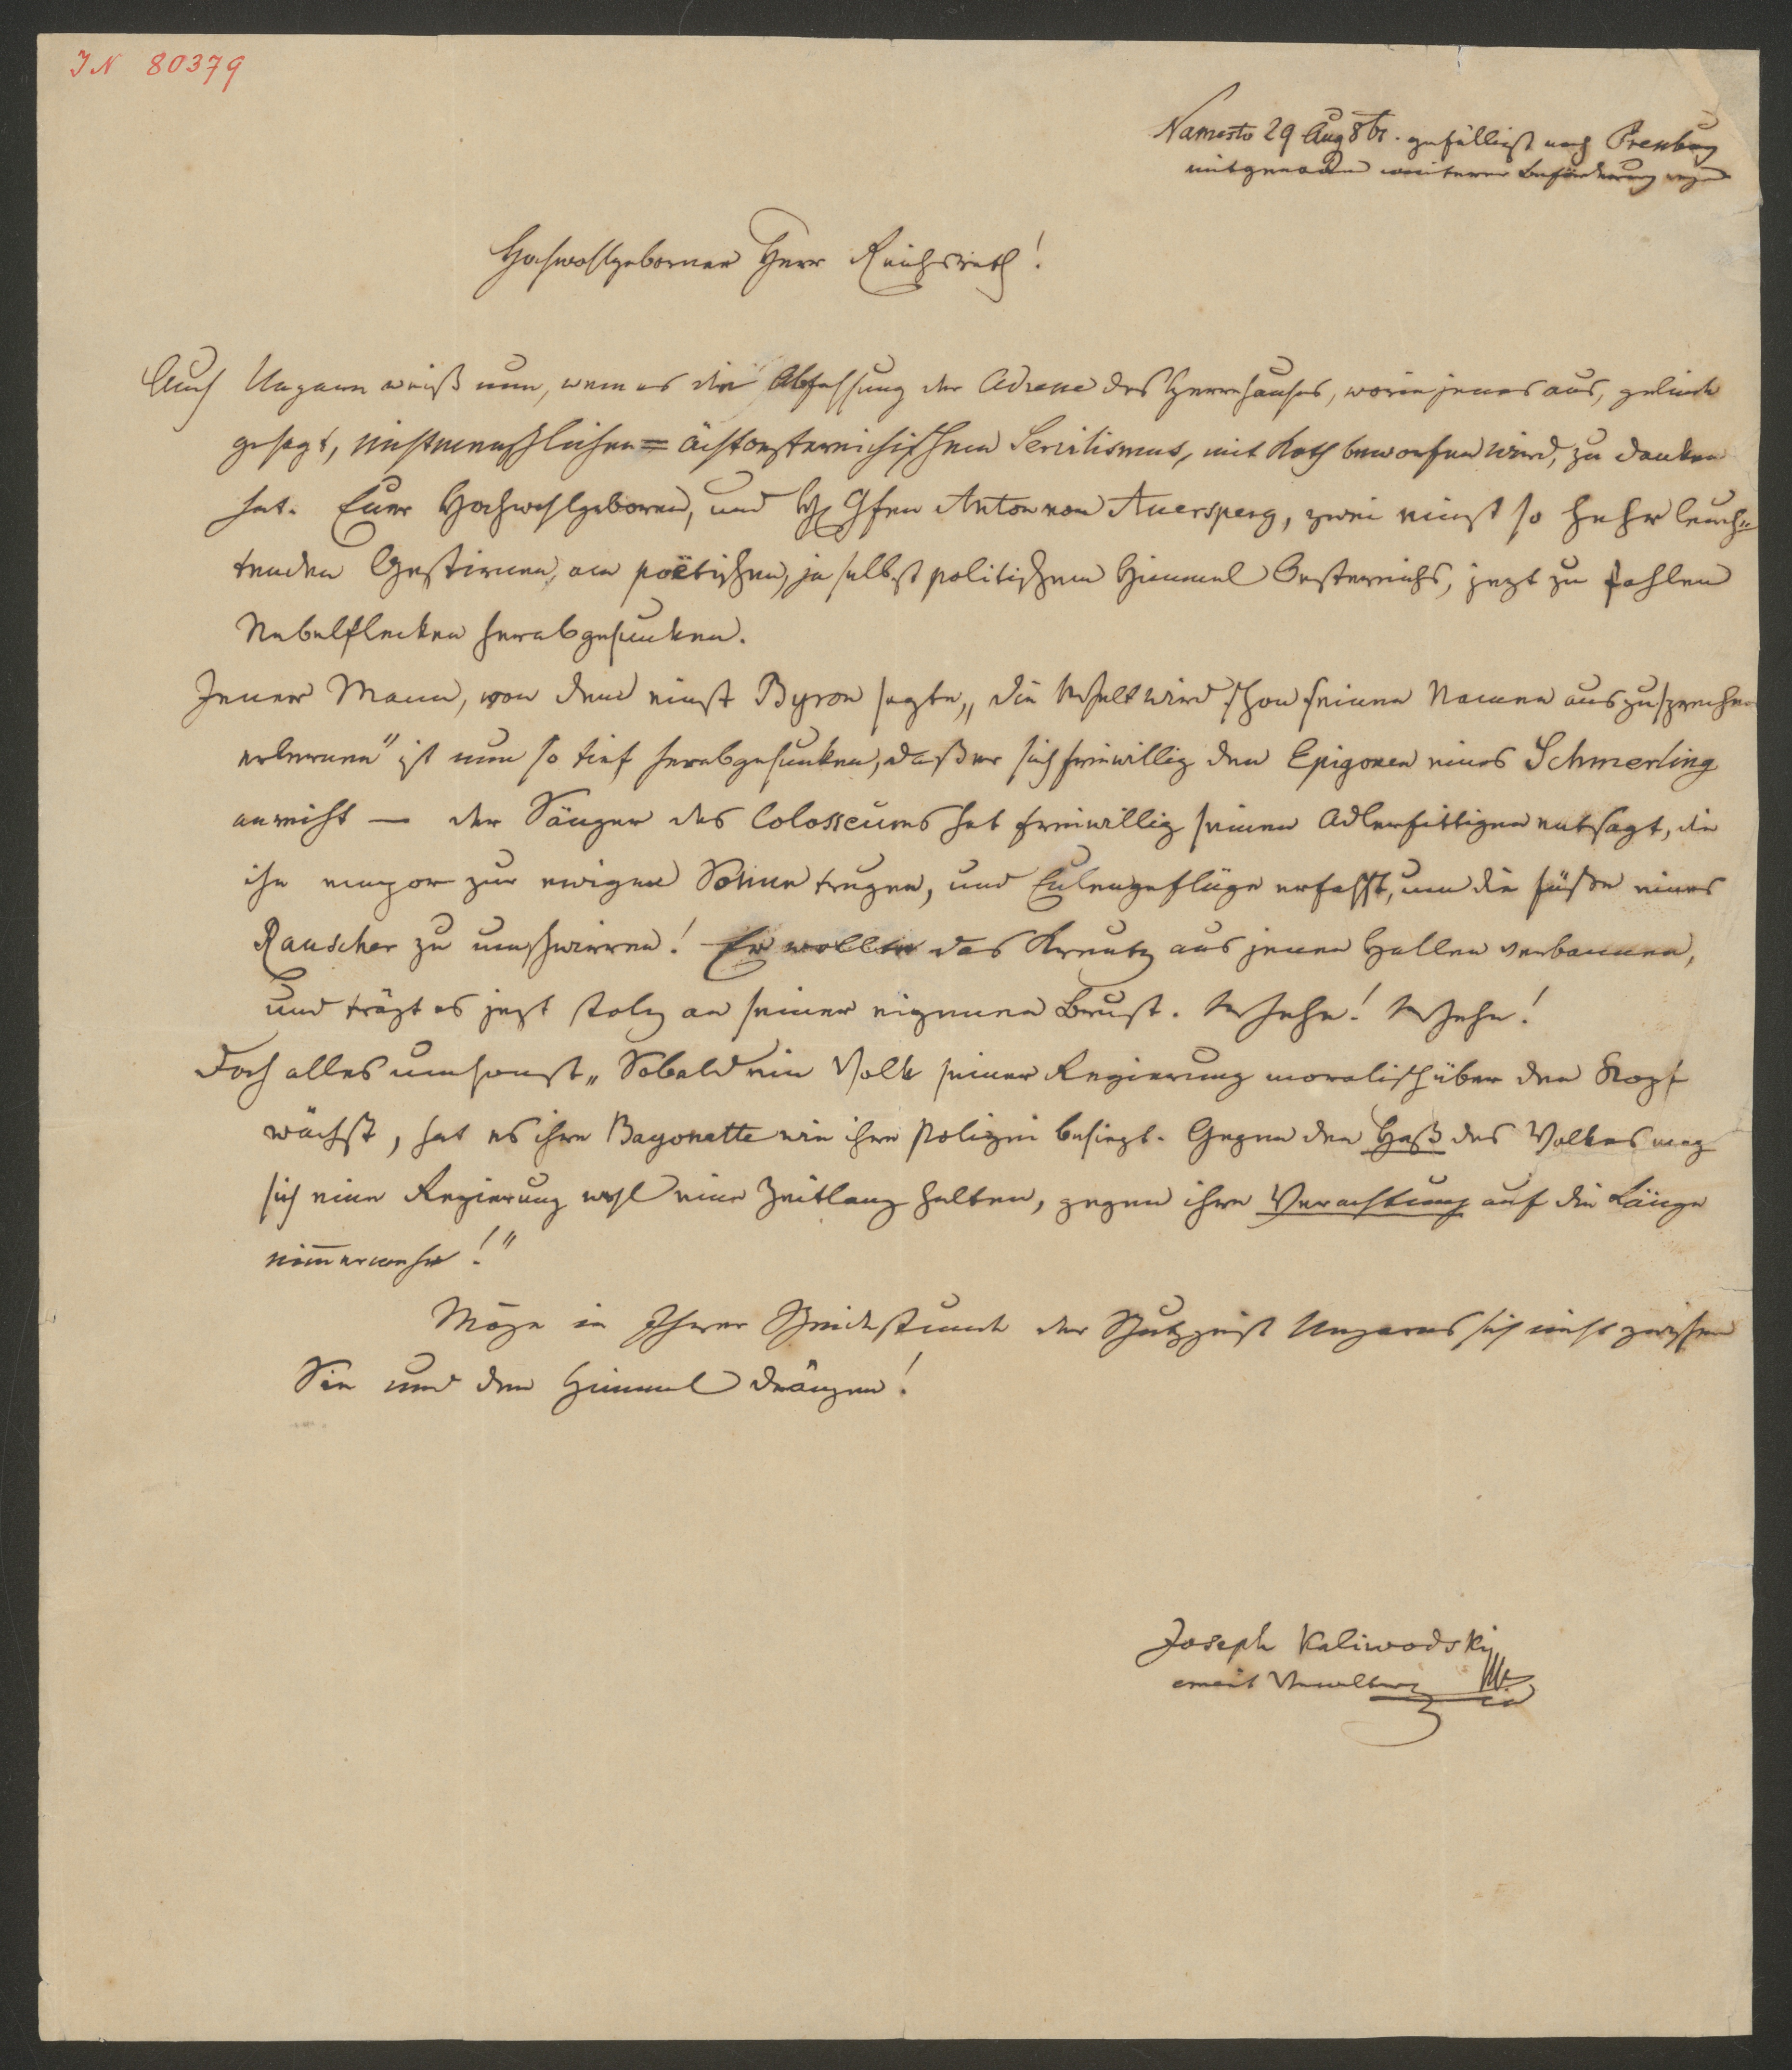 IN 80379
Namesto 29 Aug 861. gefälligst nach Pressburg
mitgenommen weiterer Beförderung wegen
Hochwohlgeborner Herr Reichsrath!
Auch Ungarn weiß nun, wem es die Abfassung der Adresse des Herrenhauses, worin jenes aus, gelinde
gesagt, österreichischem Servilismus, mit Koth beworfen wird, zu danken
hat. Euer Hochwohlgeboren, und H. Gfen Anton von Auersperg, zwei einst so hehr leuch-
tenden Gestirnen, am poëtischen, ja selbst politischem Himmel Oesterreichs, jezt zu fahlen
Nebelflecken herabgesunken.
Jener Mann, von dem einst Byron sagte „die Welt wird schon seinen Namen auszusprechen
erlernen" ist nun so tief herabgesunken, daß er sich freiwillig den Epigonen eines Schmerling
anreiht — der Sänger des Colosseums hat freiwillig seinen Adlerfittigen entsagt, die
ihn empor zur ewigen Sonne trugen, und Eulengeflüge erfasst, um die Füsse eines
Rauscher zu umschwirren! Er wollte das Kreutz aus jenen Hallen verbannen,
und trägt es jezt stolz an seiner eigenen Brust. Wehe! Wehe!
Doch alles umsonst „Sobald ein Volk seiner Regierung moralisch über den Kopf
wächst, hat es ihre Bayonette wie ihre Polizei besiegt. Gegen den Haß des Volkes mag
sich eine Regierung wohl eine Zeitlang halten, gegen ihre Verachtung auf die Länge
nim̅ermehr!"
Möge in Ihrer Scheidestunde der Schutzgeist Ungarns sich nicht zwischen
Sie und dem Himmel drängen!
Joseph Kaliwodský
emerit Verwalter